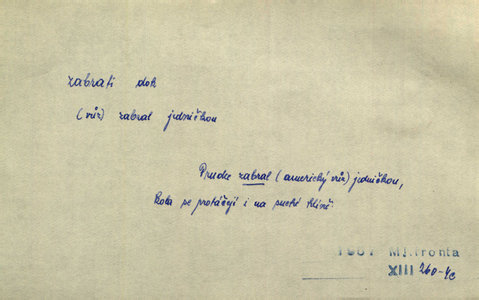 zabrati dok
(vůz) zabral jedničkou
Prudce zabral (americký vůz) jedničkou,
Kola se protáčejí i na suché hlíně.
1967 Ml.fronta
XIII 260-4c